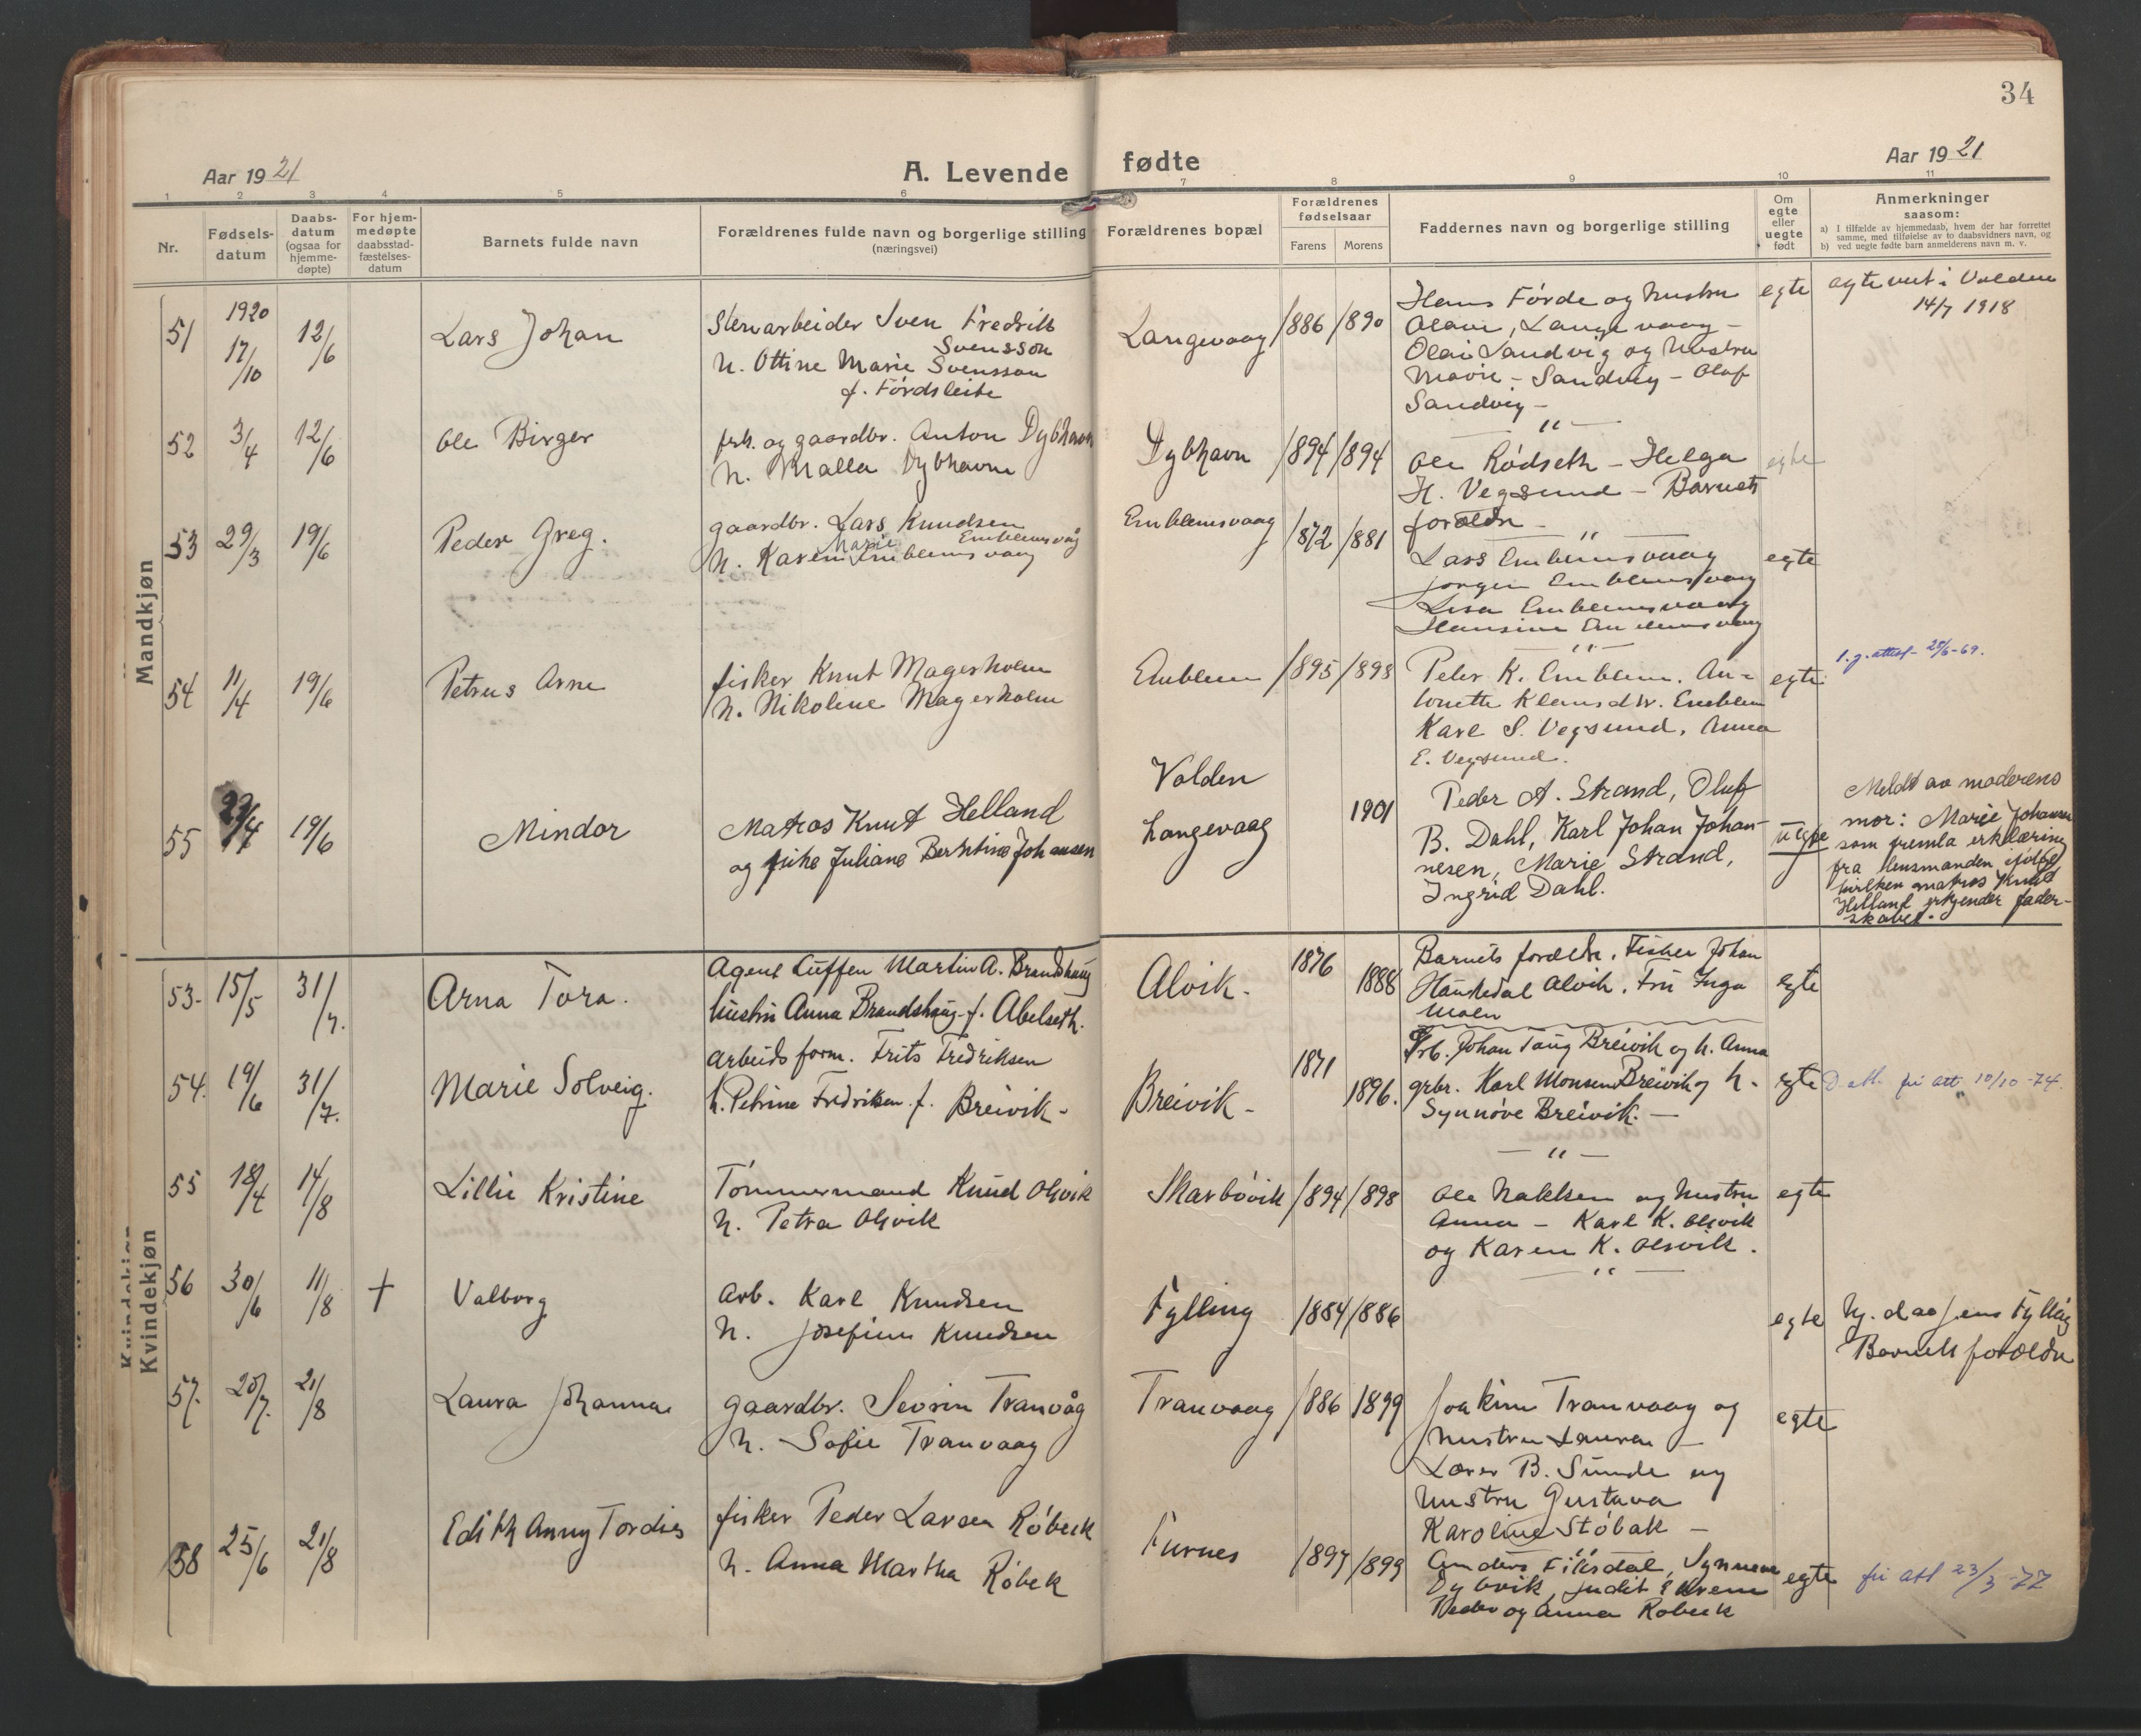 34
Aar 1921
A. Levende
fødte
Aar 1921
1 2 3 4 5 6 7 8 9 10 11
Nr.
Fødsels-
datum
Daabs-
datum
(ogsaa for
hjemme-
døpte)
For hjem-
medøpte
daabsstad-
fæstelses-
datum
Barnets fulde navn
Forældrenes fulde navn og borgerlige stilling
(næringsvei)
Forældrenes bopæl
Forældrenes
fødselsaar
Farens Morens
Faddernes navn og borgerlige stilling
Om
egte
eller
uegte
født
Anmerkninger
saasom:
a) I tilfælde av hjemmedaab, hvem der har forrettet
samme, med tilføielse av to daabsvidners navn, og
b) ved uegte fødte barn anmelderens navn m. v.
Mandkjøn
51
1920
17/10
12/6
Lars Johan
Stenarbeider Sven Fredrik
Svensson
h. Ottine Marie Svensson
f. Førdsleite
Langevaag
1886
1890
Hans Førde og hustru
Olave, Langevaag –
Olai Sandvig og hustru
Marie – Sandvig – Olaf
Sandvig –
egte
egteviet i Volden
14/7 1918
– " –
52
3/4
12/6
Ole Birger
fisk. og gaardbr. Anton Dybhavn
h. Malla Dybhavn
Dybhavn
1894
1894
Ole Rødseth – Helga
H. Vegsund – Barnets
forældre –
egte
– " –
53
29/3
19/6
Peder Greg.
gaardbr. Lars Knudsen
Emblemsvåg
Marie
h. Karen Emblemsvaag
Emblemsvaag
1872
1881
Lars Emblemsvaag
Jørgen Emblemsvaag
Lisa Emblemsvaag
Hansine Emblemsvaag
egte
– " –
54
11/4
19/6
Petrus Arne
fisker Knut Magerholm
h. Nikoline Magerholm
Emblem
1895
1893
Peter K. Emblem. An-
tonette Klemsdtr. Emblem
Karl S. Vegsund, Anna
E. Vegsund.
egte
f. g. attest – 28/6-69.
55
29/4
19/6
Mindor
Matros Knut Helland
og pike Juliane Berntine Johansen
Volden
Langevaag
1901
Peder A. Strand, Oluf
B. Dahl, Karl Johan Johan-
nesen, Marie Strand,
Ingrid Dahl.
uegte
Meldt av moderens
mor: Marie Johansen
som fremla erklæring
fra lensmanden ifølge
hvilken matros Knut
Helland erkjender fader-
skabet.
Kvindekjøn
53.
15/5
31/7.
Arna Tora.
Agent Martin A. Brandshaug
hustru Anna Brandshaug f. Abelseth.
Alvik.
1876
1888
Barnets forældre. Fisker Johan
Alvik. Fru Inga
Moen
egte
54.
19/6
31/7.
Marie Solveig.
Arbeidsform. Frits Fredriksen
h. Petrine Fredriksen f. Breivik –
Breivik –
1871
1896.
Grb. Johan Taug Breivik og h. Anna
grbr. Karl Monsen Breivik og h.
Synnøve Breivik. –
egte
fri att 10/10-74.
– " –
55
18/4
14/8
Lillie Kristine
Tømmermand Knud Olsvik
h. Petra Olsvik
Skarbøvik
1894
1898
Ole Nakken og hustru
Anna – Karl K. Olsvik
og Karen K. Olsvik.
egte
– " –
56
30/6
11/8
+
Valborg
Arb. Karl Knudsen
h. Josefine Knudsen
Fylling
1884
1886
egte
Hj. d. av Jens Fylling
Barnets forældre
57.
20/7.
21/8
Laura Johanna
gaardbr. Sevrin Tranvåg
h. Sofie Tranvaag
Tranvaag
1886
1899
Joakim Tranvaag og
hustru Laura –
Lærer B. Sunde og
hustru Gustava
Karoline Støbak –
egte
– " –
58
25/6
21/8
Edith Anny Tordis
fisker Peder Larsen Røbeck
h. Anna Martha Røbek
Furnes
1897
1899
Anders Fiksdal, Synneve
Dybvik, Judit Ekrem
Peder og Anna Røbeck
egte
fri att 23/3-77